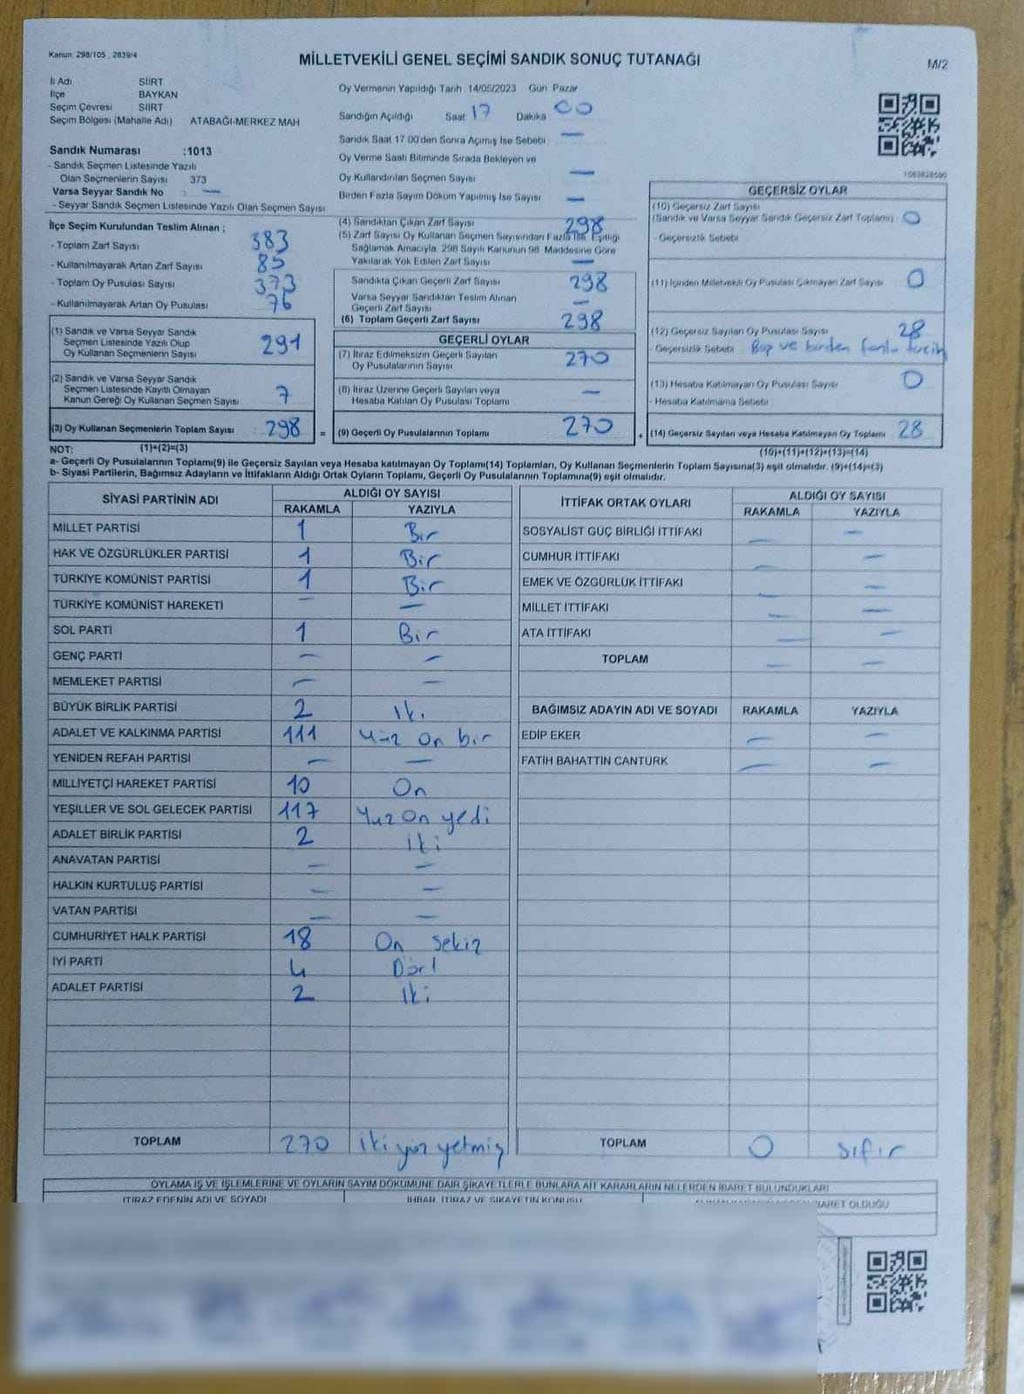 Kanun: 298/105 , 2839/4
MİLLETVEKİLİ GENEL SEÇİMİ SANDIK SONUÇ TUTANAĞI
M/2
İl Adı SİİRT
İlçe BAYKAN
Seçim Çevresi SİİRT
Seçim Bölgesi (Mahalle Adı) ATABAĞI-MERKEZ MAH
Sandık Numarası :1013
- Sandık Seçmen Listesinde Yazılı
Olan Seçmenlerin Sayısı 373
Varsa Seyyar Sandık No : —
- Seyyar Sandık Seçmen Listesinde Yazılı Olan Seçmen Sayısı
Oy Vermenin Yapıldığı Tarih 14/05/2023 Gün Pazar
Sandığın Açıldığı Saat 17 Dakika 00
Sandık Saat 17.00'den Sonra Açılmış İse Sebebi —
Oy Verme Saati Bitiminde Sırada Bekleyen ve
Oy Kullandırılan Seçmen Sayısı —
Birden Fazla Sayım Döküm Yapılmış İse Sayısı —
İlçe Seçim Kurulundan Teslim Alınan ;
- Toplam Zarf Sayısı 383
- Kullanılmayarak Artan Zarf Sayısı 85
- Toplam Oy Pusulası Sayısı 373
- Kullanılmayarak Artan Oy Pusulası 76
(1) Sandık ve Varsa Seyyar Sandık
Seçmen Listesinde Yazılı Olup
Oy Kullanan Seçmenlerin Sayısı 291
(2) Sandık ve Varsa Seyyar Sandık
Seçmen Listesinde Kayıtlı Olmayan
Kanun Gereği Oy Kullanan Seçmen Sayısı 7
(3) Oy Kullanan Seçmenlerin Toplam Sayısı 298 =
(4) Sandıktan Çıkan Zarf Sayısı 298
(5) Zarf Sayısı Oy Kullanan Seçmen Sayısından Fazla İse, Eşitliği
Sağlamak Amacıyla, 298 Sayılı Kanunun 98. Maddesine Göre
Yakılarak Yok Edilen Zarf Sayısı —
Sandıkta Çıkan Geçerli Zarf Sayısı 298
Varsa Seyyar Sandıktan Teslim Alınan
Geçerli Zarf Sayısı —
(6) Toplam Geçerli Zarf Sayısı 298
GEÇERLİ OYLAR
(7) İtiraz Edilmeksizin Geçerli Sayılan
Oy Pusulalarının Sayısı 270
(8) İtiraz Üzerine Geçerli Sayılan veya
Hesaba Katılan Oy Pusulası Toplamı —
(9) Geçerli Oy Pusulalarının Toplamı 270 +
GEÇERSİZ OYLAR
(10) Geçersiz Zarf Sayısı
(Sandık ve Varsa Seyyar Sandık Geçersiz Zarf Toplamı) 0
- Geçersizlik Sebebi
(11) İçinden Milletvekili Oy Pusulası Çıkmayan Zarf Sayısı 0
(12) Geçersiz Sayılan Oy Pusulası Sayısı 28
- Geçersizlik Sebebi Boş ve birden fazla tercih
(13) Hesaba Katılmayan Oy Pusulası Sayısı 0
- Hesaba Katılmama Sebebi
(14) Geçersiz Sayılan veya Hesaba Katılmayan Oy Toplamı 28
NOT: (1)+(2)=(3) (10)+(11)+(12)+(13)=(14)
a- Geçerli Oy Pusulalarının Toplamı(9) ile Geçersiz Sayılan veya Hesaba katılmayan Oy Toplamı(14) Toplamları, Oy Kullanan Seçmenlerin Toplam Sayısına(3) eşit olmalıdır. (9)+(14)=(3)
b- Siyasi Partilerin, Bağımsız Adayların ve İttifakların Aldığı Ortak Oyların Toplamı, Geçerli Oy Pusulalarının Toplamına(9) eşit olmalıdır.
SİYASİ PARTİNİN ADI ALDIĞI OY SAYISI
RAKAMLA YAZIYLA
MİLLET PARTİSİ 1 Bir
HAK VE ÖZGÜRLÜKLER PARTİSİ 1 Bir
TÜRKİYE KOMÜNİST PARTİSİ 1 Bir
TÜRKİYE KOMÜNİST HAREKETİ — —
SOL PARTİ 1 Bir
GENÇ PARTİ — —
MEMLEKET PARTİSİ — —
BÜYÜK BİRLİK PARTİSİ 2 İki
ADALET VE KALKINMA PARTİSİ 111 Yüz On bir
YENİDEN REFAH PARTİSİ — —
MİLLİYETÇİ HAREKET PARTİSİ 10 On
YEŞİLLER VE SOL GELECEK PARTİSİ 117 Yüz On yedi
ADALET BİRLİK PARTİSİ 2 İki
ANAVATAN PARTİSİ — —
HALKIN KURTULUŞ PARTİSİ — —
VATAN PARTİSİ — —
CUMHURİYET HALK PARTİSİ 18 On sekiz
İYİ PARTİ 4 Dört
ADALET PARTİSİ 2 İki
TOPLAM 270 İki yüz yetmiş
İTTİFAK ORTAK OYLARI ALDIĞI OY SAYISI
RAKAMLA YAZIYLA
SOSYALİST GÜÇ BİRLİĞİ İTTİFAKI — —
CUMHUR İTTİFAKI — —
EMEK VE ÖZGÜRLÜK İTTİFAKI — —
MİLLET İTTİFAKI — —
ATA İTTİFAKI — —
TOPLAM — —
BAĞIMSIZ ADAYIN ADI VE SOYADI RAKAMLA YAZIYLA
EDİP EKER — —
FATİH BAHATTİN CANTÜRK — —
TOPLAM 0 sıfır
OYLAMA İŞ VE İŞLEMLERİNE VE OYLARIN SAYIM DÖKÜMÜNE DAİR ŞİKAYETLERLE BUNLARA AİT KARARLARIN NELERDEN İBARET BULUNDUKLARI
İTİRAZ EDENİN ADI VE SOYADI İHBAR, İTİRAZ VE ŞİKAYETİN KONUSU İBARET OLDUĞU